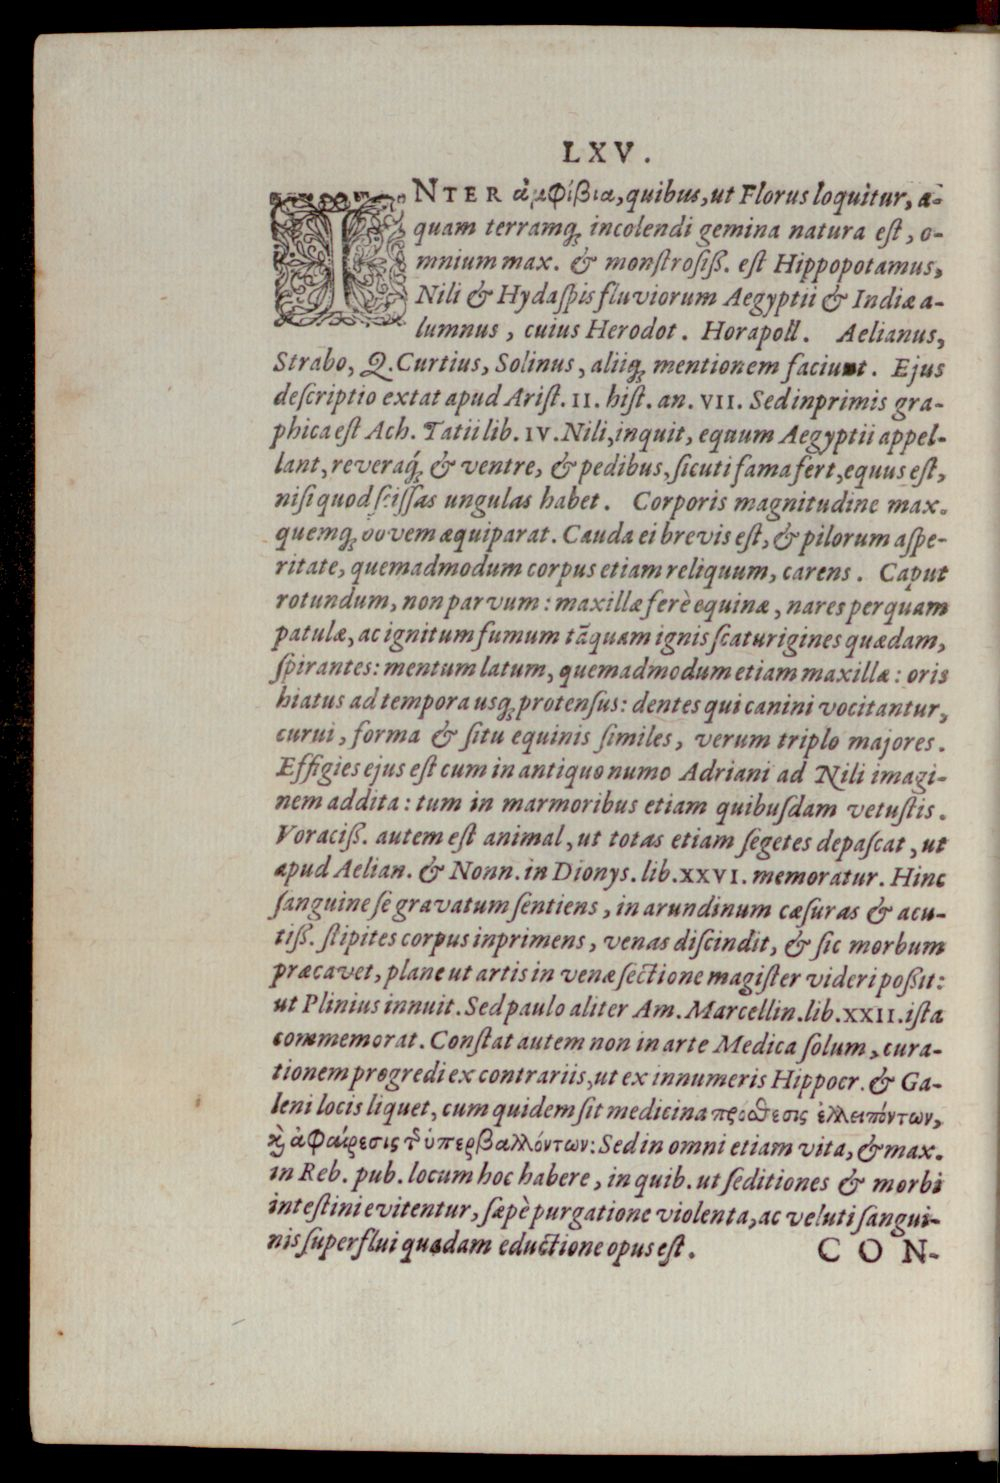 LXV.
INTER ἀμφίβια, quibus, ut Florus loquitur, a-
quam terramq; incolendi gemina natura est, o-
mnium max. & monstrosiß. est Hippopotamus,
Nili & Hydaspis fluviorum Aegyptii & Indiæ a-
lumnus, cuius Herodot. Horapoll. Aelianus,
Strabo, Q. Curtius, Solinus, aliiq; mentionem faciunt. Ejus
descriptio extat apud Arist. II. hist. an. VII. Sed inprimis gra-
phica est Ach. Tatii lib. IV. Nili, inquit, equum Aegyptii appel-
lant, reveraq́; & ventre, & pedibus, sicuti fama fert, equus est,
nisi quod scissas ungulas habet. Corporis magnitudine max.
quemq; bovem æquiparat. Cauda ei brevis est, & pilorum aspe-
ritate, quemadmodum corpus etiam reliquum, carens. Caput
rotundum, non parvum: maxillæ ferè equinæ, nares perquam
patulæ, ac ignitum fumum tãquam ignis scaturigines quædam,
spirantes: mentum latum, quemadmodum etiam maxillæ: oris
hiatus ad tempora usq; protensus: dentes qui canini vocitantur,
curui, forma & situ equinis similes, verum triplo majores.
Effigies ejus est cum in antiquo numo Adriani ad Nili imagi-
nem addita: tum in marmoribus etiam quibusdam vetustis.
Voraciß. autem est animal, ut totas etiam segetes depascat, ut
apud Aelian. & Nonn. in Dionys. lib. XXVI. memoratur. Hinc
sanguine se gravatum sentiens, in arundinum cæsuras & acu-
tiß. stipites corpus inprimens, venas discindit, & sic morbum
præcavet, plane ut artis in venæ sectione magister videri poßit:
ut Plinius innuit. Sed paulo aliter Am. Marcellin. lib. XXII. ista
commemorat. Constat autem non in arte Medica solum, cura-
tionem progredi ex contrariis, ut ex innumeris Hippocr. & Ga-
leni locis liquet, cum quidem sit medicina πρόσθεσις ἐλλειπόντων,
καὶ ἀφαίρεσις τῶν ὑπερβαλλόντων: Sed in omni etiam vita, & max.
in Reb. pub. locum hoc habere, in quib. ut seditiones & morbi
intestini evitentur, sæpè purgatione violenta, ac veluti sangui-
nis superflui quadam eductione opus est. CON-